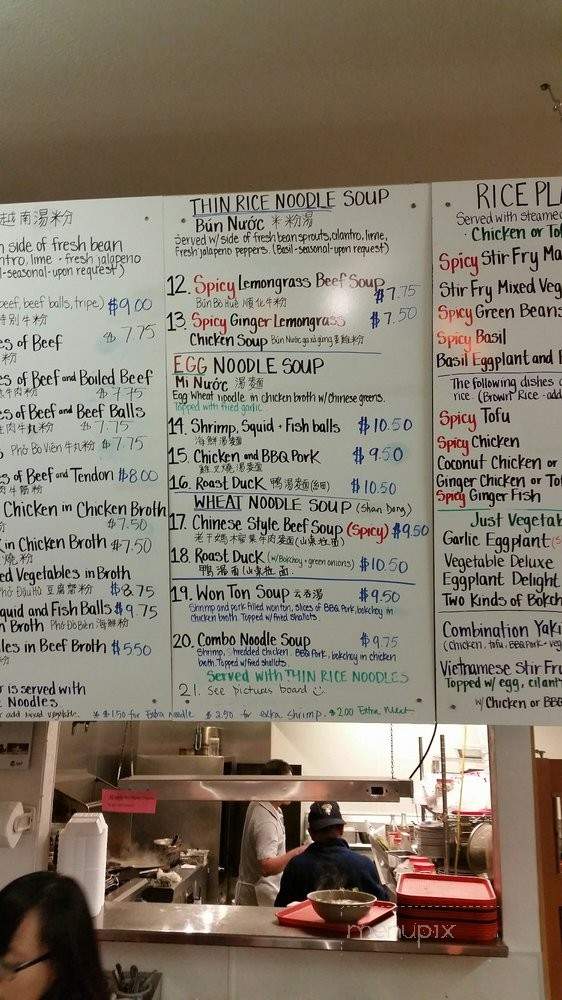 越南湯粉
side of fresh bean
lime - fresh jalapeno
-seasonal-upon request)
beef, beef balls, tripe) $9.00
特別牛粉
es of Beef $7.75
粉
es of Beef and Boiled Beef
$7.75
es of Beef and Beef Balls
$7.75
Phở Bò Viên 牛丸粉 $7.75
es of Beef and Tendon $8.00
Chicken in Chicken Broth
$7.50
in Chicken Broth $7.50
ed Vegetables in Broth
Phở Đậu Hủ $8.75
quid and Fish Balls $9.75
n Broth Phở Đồ Biển 海鮮粉
les in Beef Broth $5.50
r is served with
Noodles
add mixed vegetable. * $1.50 for Extra noodle $2.50 for extra shrimp. $2.00 Extra Meat
THIN RICE NOODLE SOUP
Bún Nước 米粉湯
Served w/ side of fresh bean sprouts, cilantro, lime,
Fresh jalapeno peppers. (Basil-seasonal-upon request)
12. Spicy Lemongrass Beef Soup
Bún Bò Huế 順化牛粉 $7.75
13. Spicy Ginger Lemongrass $7.50
Chicken Soup Bún Nước gà xả gừng
EGG NOODLE SOUP
Mì Nước 湯麵
Egg wheat noodle in chicken broth w/ Chinese greens.
Topped with fried garlic
14. Shrimp, Squid & Fish balls $10.50
海鮮湯麵
15. Chicken and BBQ Pork $9.50
雞叉燒湯麵
16. Roast Duck 鴨湯麵(細) $10.50
WHEAT NOODLE SOUP (Shan Dong)
17. Chinese Style Beef Soup (Spicy) $9.50
18. Roast Duck (w/Bokchoy & green onions) $10.50
鴨湯面(山東拉面)
19. Won Ton Soup 云吞湯 $9.50
Shrimp and pork filled won ton, slices of BBQ Pork, bokchoy in
chicken broth. Topped w/ fried shallots
20. Combo Noodle Soup $9.75
Shrimp, Shredded chicken, BBQ Pork, bokchoy in chicken
broth. Topped w/ fried shallots.
Served with THIN RICE NOODLES
21. See pictures board
RICE PLA
Served with steamed
Chicken or Tof
Spicy Stir Fry Ma
Stir Fry Mixed Veg
Spicy Green Beans
Spicy Basil
Basil Eggplant and
The following dishes
rice. (Brown Rice - add
Spicy Tofu
Spicy Chicken
Coconut Chicken or
Ginger Chicken or Tof
Spicy Ginger Fish
Just Vegetab
Garlic Eggplant
Vegetable Deluxe
Eggplant Delight
Two Kinds of Bokch
Combination Yaki
(Chicken, tofu, BBQ Pork & veg
Vietnamese Stir Fr
Topped w/ egg, cilant
w/ Chicken or BBQ
menupix